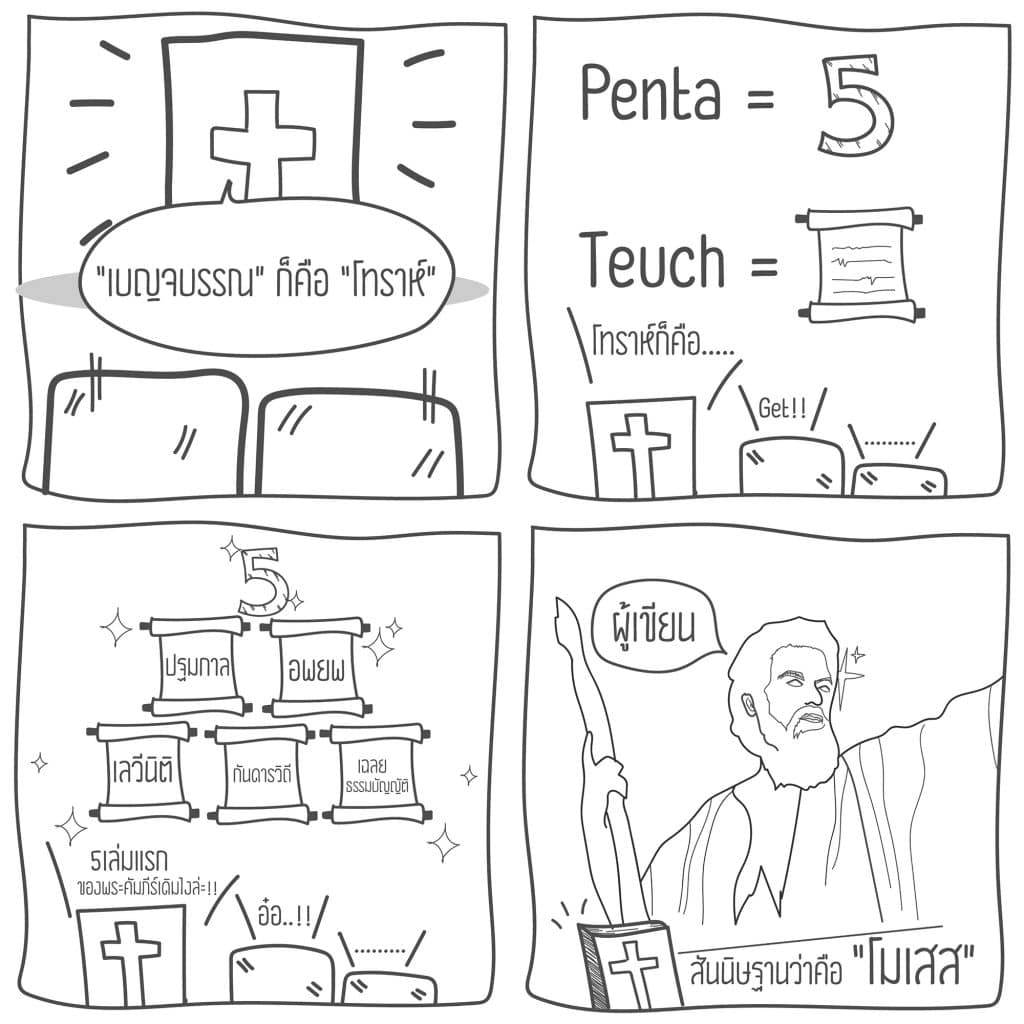 "เบญจบรรณ" ก็คือ "โทราห์"
Penta = 5
Teuch =
โทราห์ก็คือ.....
Get!!
.........
5
ปฐมกาล
อพยพ
เลวีนิติ
กันดารวิถี
เฉลย
ธรรมบัญญัติ
5เล่มแรก
ของพระคัมภีร์เดิมไงล่ะ!!
อ๋อ..!!
.........
ผู้เขียน
สันนิษฐานว่าคือ "โมเสส"